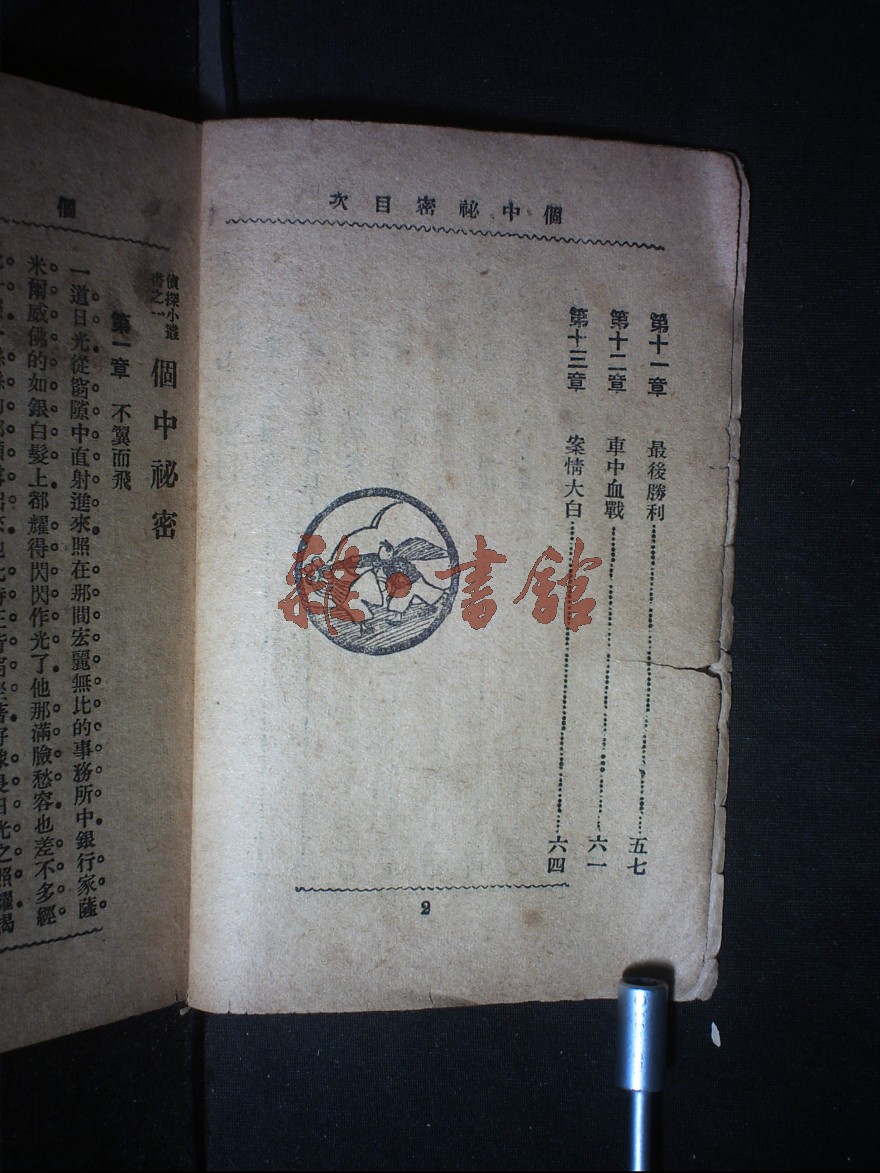 個中祕密目次
第十一章 最後勝利 五七
第十二章 車中血戰 六一
第十三章 案情大白 六四
2
個
偵探小叢書之一
個中祕密
第一章 不翼而飛
一道日光從窗隙中直射進來照在那間宏麗無比的事務所中銀行家薩
米爾威佛的如銀白髮上都耀得閃閃作光了他那滿臉愁容也差不多經
日光之照耀揭
雅書館